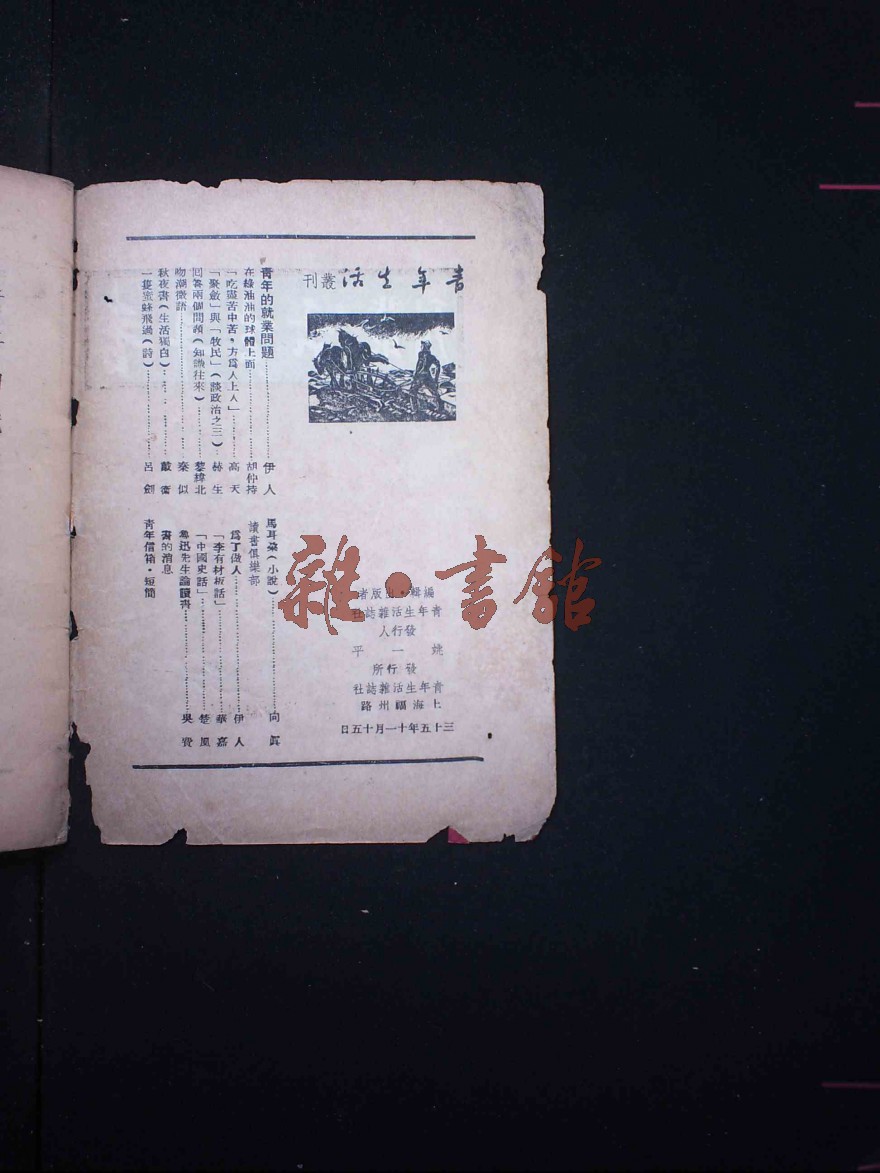 青年生活叢刊
編輯·出版者
青年生活雜誌社
發行人
姚一平
發行所
青年生活雜誌社
上海福州路
三十五年十一月十五日
青年的就業問題……伊人
在綠油油的球體上面……胡仲持
「吃盡苦中苦，方爲人上人」……高天
「聚斂」與「牧民」（談政治之三）……赫生
回答兩個問題（知識往來）……黎緯北
吻潮微語……秦似
秋夜書（生活獨白）……戴
一隻蜜蜂飛過（詩）……呂劍
馬耳朶（小說）……向眞
讀書俱樂部
爲了做人……伊人
「李有材板話」……華嘉
「中國史話」……楚風
魯迅先生論讀書……吳
書的消息
青年信箱·短簡
雜·書館